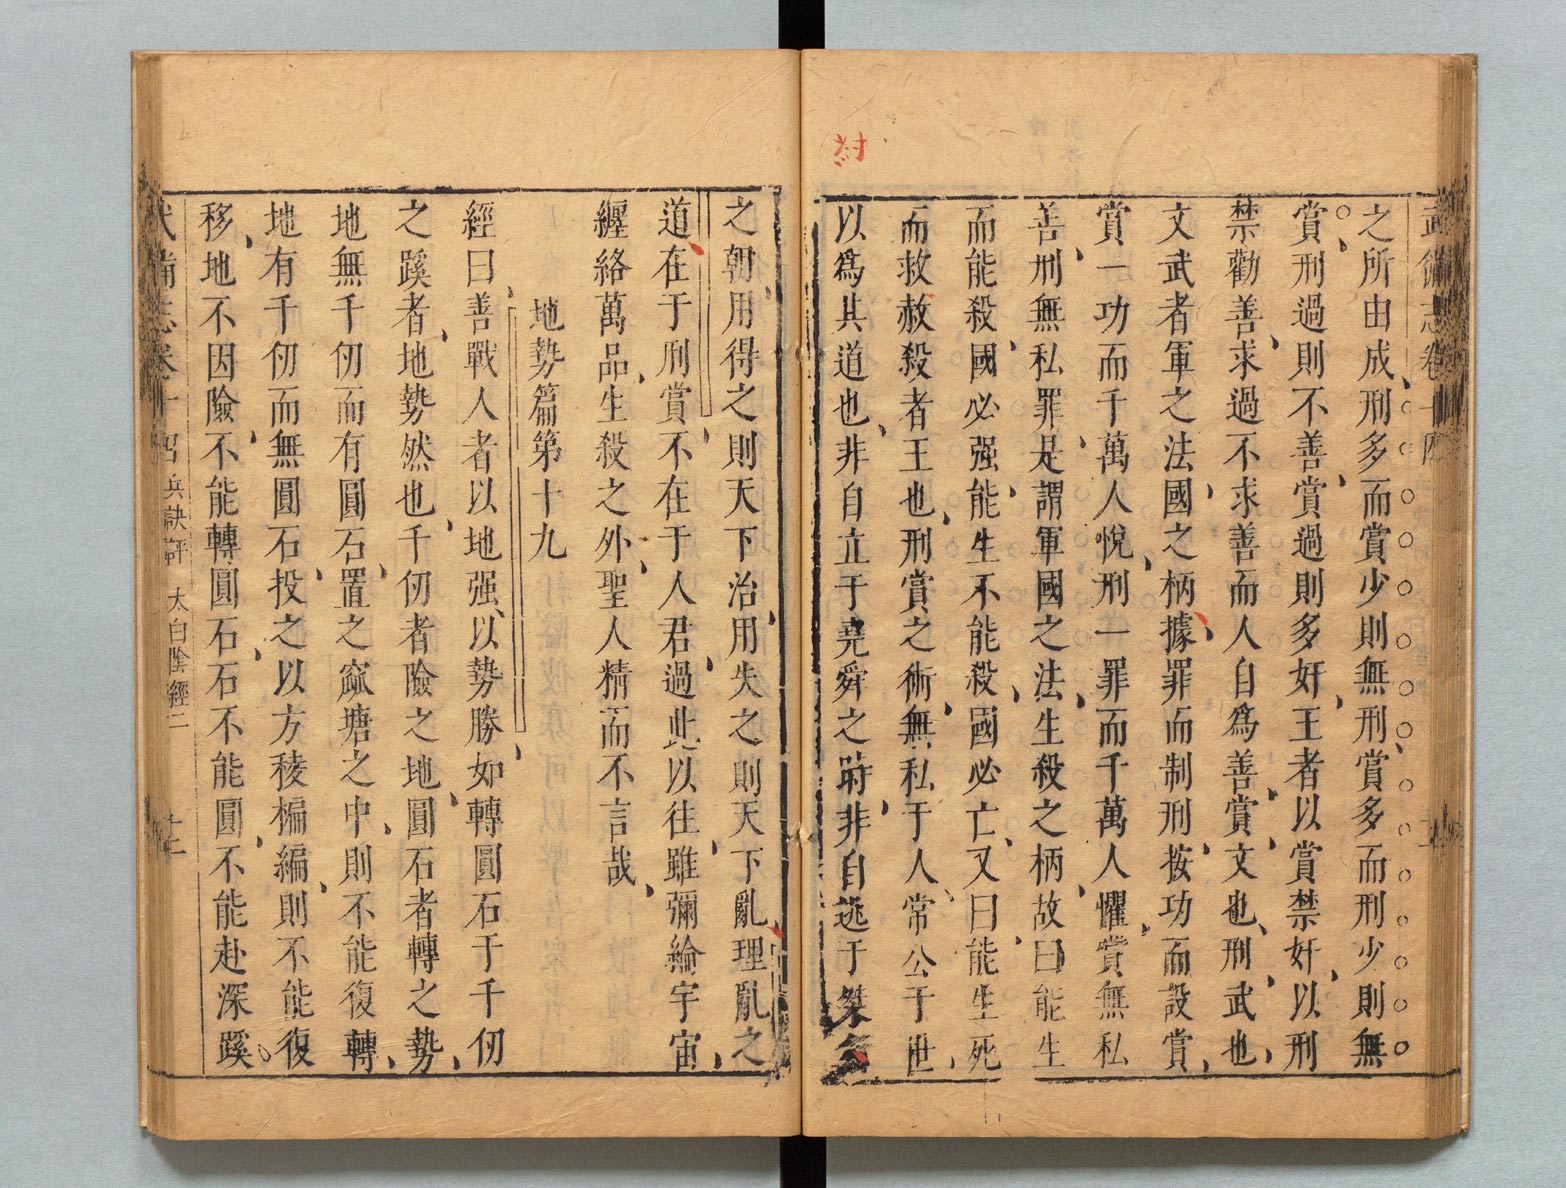 武備志卷
之所由成刑多而賞少則無刑賞多而刑少則無
賞刑過則不善賞過則多奸王者以賞禁奸以刑
禁勸善求過不求善而人自爲善賞文也刑武也
文武者軍之法國之柄據罪而制刑按功而設賞
賞一功而千萬人悅刑一罪而千萬人懼賞無私
善刑無私罪是謂軍國之法生殺之柄故曰能生
而能殺國必强能生不能殺國必亡又曰能生死
而救赦殺者王也刑賞之術無私于人常公于世
以爲其道也非自立于堯舜之時非自逃于桀
討
之朝用得之則天下治用失之則天下亂理亂之
道在于刑賞不在于人君過此以往雖彌綸宇宙
纏絡萬品生殺之外聖人精而不言哉
地勢篇第十九
經曰善戰人者以地强以勢勝如轉圓石于千仞
之蹊者地勢然也千仞者險之地圓石者轉之勢
地無千仞而有圓石置之窳塘之中則不能復轉
地有千仞而無圓石投之以方稜楄編則不能復
移地不因險不能轉圓石石不能圓不能赴深蹊
武備志卷十 兵訣評 太白陰經二 十二